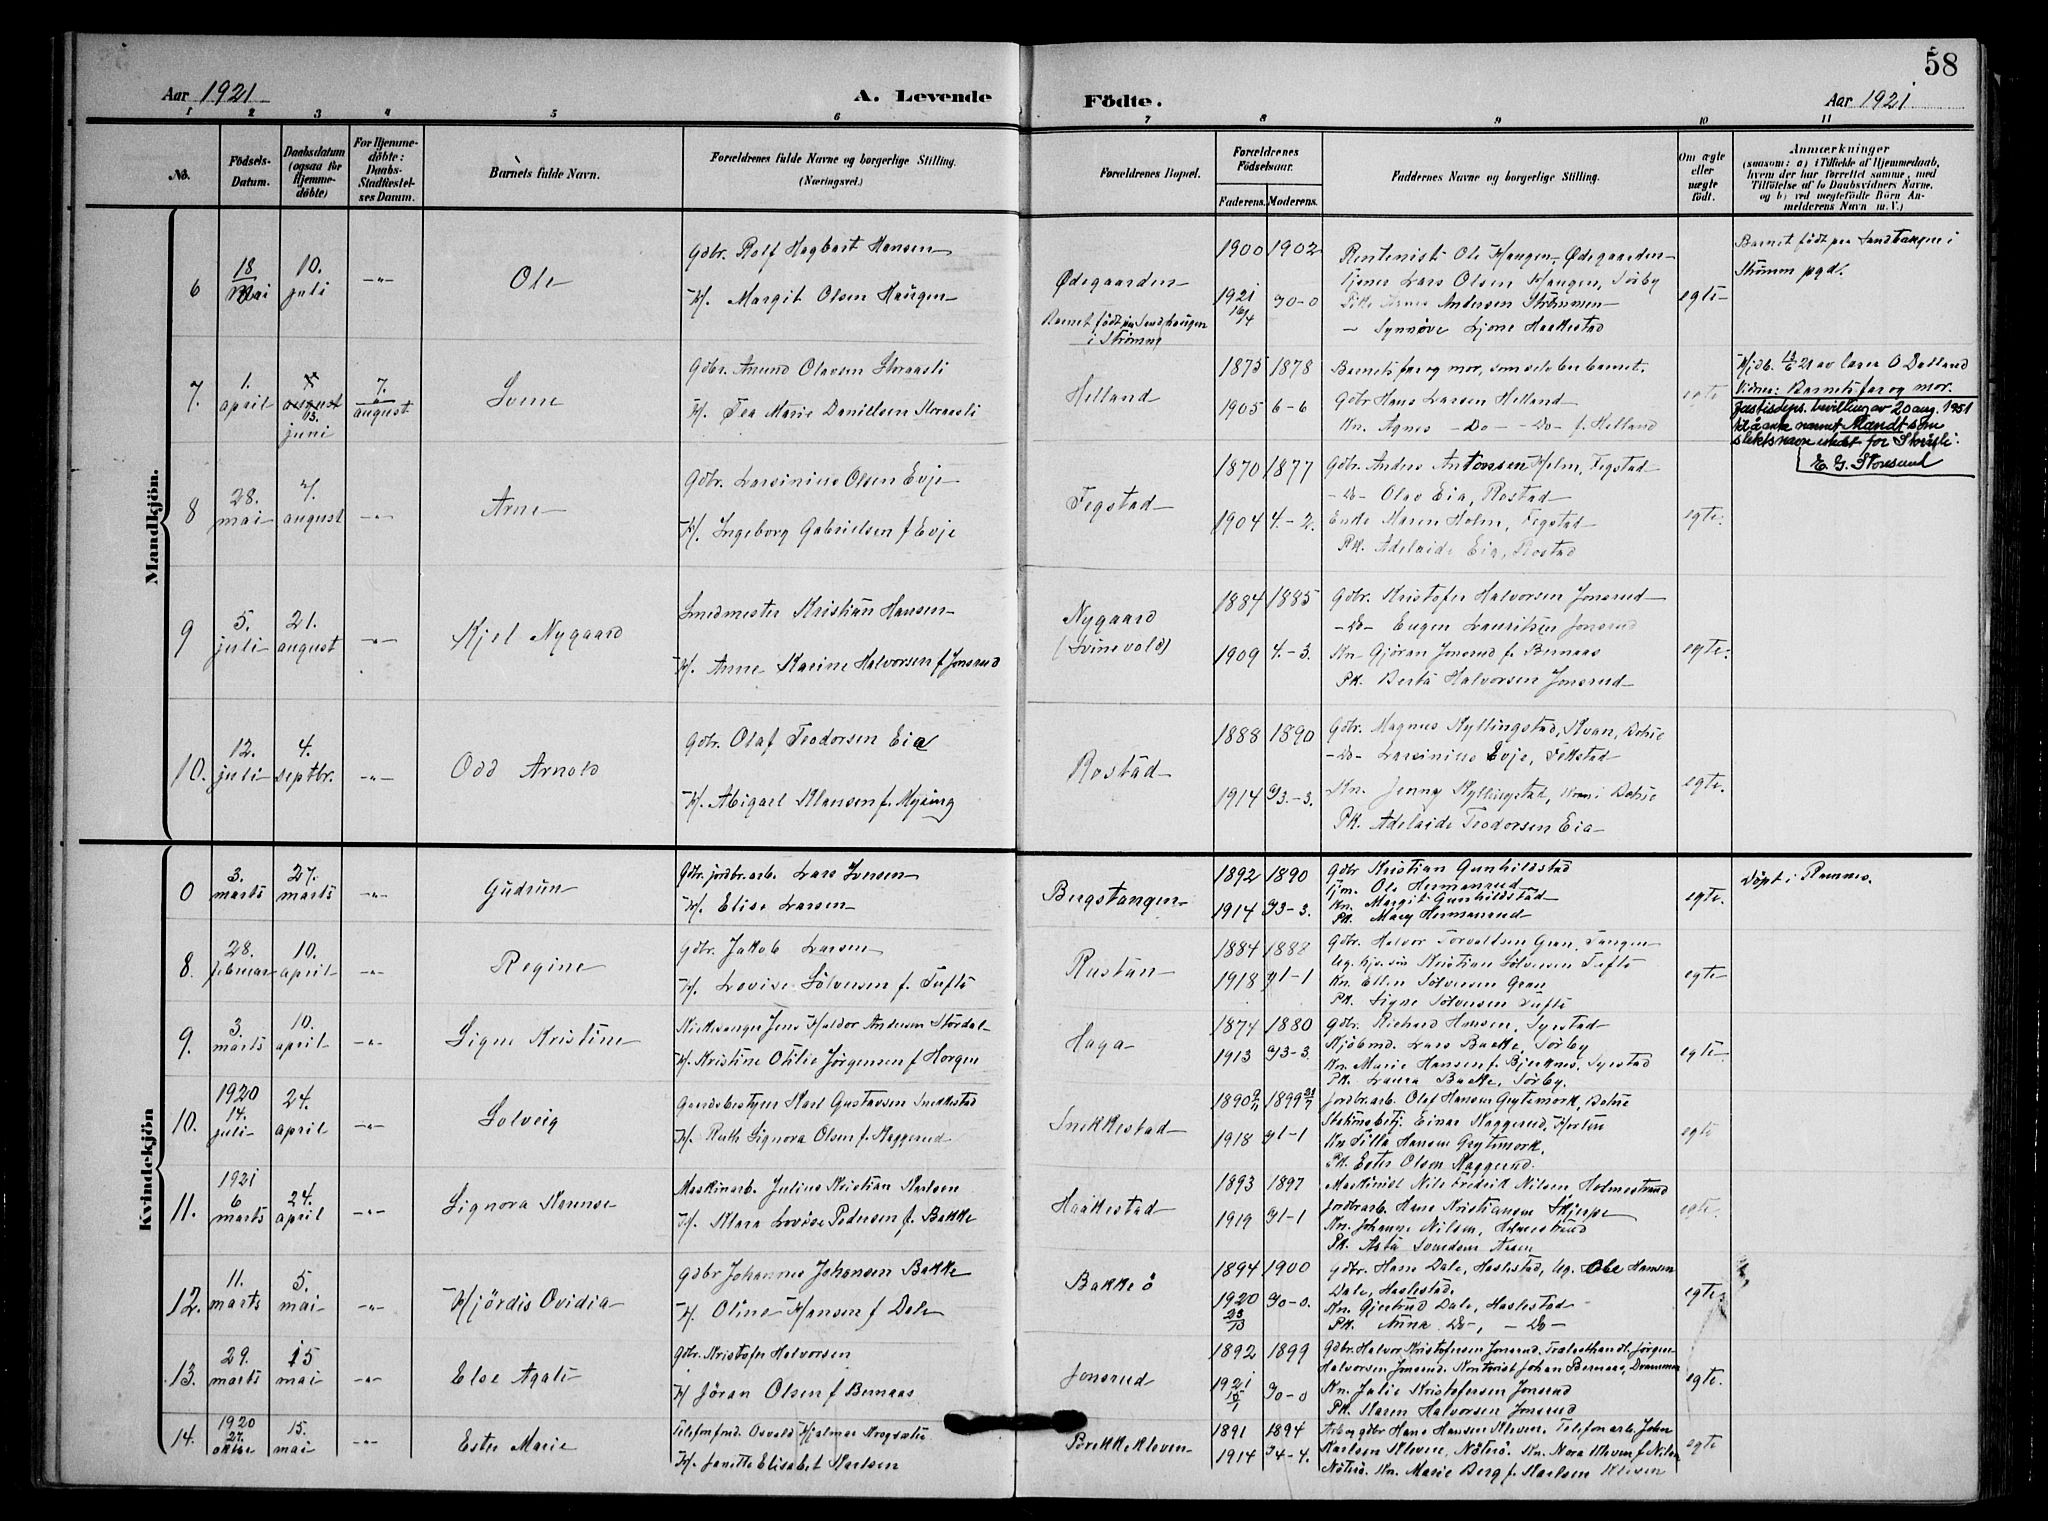 58
Aar 1921
A. Levende
Födte.
Aar 1921
1 2 3 4 5 6 7 8 9 10 11
No.
Födsels-Datum.
Daabsdatum (ogsaa for Hjemmedöbte)
For Hjemmedöbte: Daabs-Stadfæstelses Datum.
Barnets fulde Navn.
Forældrenes fulde Navne og borgerlige Stilling. (Næringsvei.)
Forældrenes Bopæl.
Forældrenes Födselsaar.
Faderens. Moderens.
Faddernes Navne og borgerlige Stilling.
Om ægte eller uægte födt.
Anmærkninger
(saasom: a) i Tilfælde af Hjemmedaab,
hvem der har forrettet samme, med
Tilföielse af to Daabsvidners Navne,
og b) ved uægtefödte Börn Anmelderens Navn m. V.)
Mandkjön.
6 18/Mai 10. juli -"- Ole
Gdbr. Rolf Hagbart Hansen
H/. Margit Olsen Haugen
Ødegaarden
Barnet født paa Sandhaugen i Strømm
1900 1902
1921 16/4 G0-0
Rentenist Ole Haugen, Ødegaarden
Tjener Lars Olsen Haugen, Sørby
Andersen Strømmen
- Synnøve Ljone Haakestad
egte
Barnet født paa Sandhaugen i
Strømm pgd.
7. 1. april
7. august
03. juni
7. august
Svein
Gdbr. Amund Olavsen Storaasli
H/. Tea Marie Danielsen Storaasli
Helland
1875 1878
1905 6-6
Barnets far og mor, som selv ber barnet.
Gdbr Hans Larsen Helland
Kn. Agnes -Do- -Do- f. Helland
egte
Hjdb. av O Dalland
Vidner: Barnets far og mor.
Justisdeps. bevilling av 20 aug. 1951
til å anta navnet Mandt som
slektsnavn istedet for
E. G. Storesund
8 28. mai 7. august -"- Arne
Gdbr. Larsinius Olsen Evje
H/. Ingeborg Gabrielsen f Evje
Fegstad
1870 1877
1904 4.-2.
Gdbr. Anders Antonsen Holm, Fegstad
-Do- Olav Eia, Rostad
Enke Maren Holm, Fegstad
Pk. Adelaide Eia, Rostad
egte.
9 5. juli 21. august -"- Kjel Nygaard
Smedmester Kristian Hansen
H/. Anne Karine Halvorsen f Jonsrud
Nygaard
(Svinevold)
1884 1885
1909 4.-3.
Gdbr. Kristofer Halvorsen Jonsrud
-Do- Eugen Lauritsen Jonsrud
Kn Gjöran Jonsrud f. Bernaas
Pk. Berta Halvorsen Jonsrud
egte.
10. 12. juli 4. septbr. -"- Odd Arnold
Gdbr. Olaf Teodorsen Eia
H/. Abigael Klausen f. Mysing
Rostad
1888 1890
1914 G3.-3.
Gdbr. Magnus Kyllingstad, Kvan, Botne
-Do- Larsinius Evje, Fekstad
Kn. Jenny Kyllingstad, Botne
Pk. Adelaide Teodorsen Eia
egte.
Kvindekjön
0 3. marts 27. marts -"- Gudrun
Gdbr. jordbr.arb. Lars Iversen
H/. Elise Larsen
Bergstangen
1892 1890
1914 G3-3.
Gdbr Kristian Gunhildstad
Tjm. Ole Hermansrud
Kn. Margit Gunhildstad
Pk. Mary Hermansrud
egte.
Döpt i Ramnes.
8. 28. februar 10. april -"- Regine
Gdbr. Jakob Larsen
H/. Lovise Sölversen f. Tuftö
Rustan
1884 1882
1918 G1-1
Gdbr. Halvor Torvaldsen Gran, Tangen
Ug. Kristian Sölversen Tuftö
Kn. Ellen Sölversen Gran
Pk. Signe Sölversen Tuftö
egte
9. 3. marts 10. april -"- Signe Kristine
Kirkesanger Jens Haldor Andersen Stördal
H/. Kristine Otilie Jörgensen f Horgen
Haga
1874 1880
1913 G3-3.
Gdbr. Richard Hansen, Syrstad
Kjöbmd. Lars Bakke, Sörby
Kn. Marie Hansen f. Bjerknes, Syrstad
Pk. Laura Bakke, Sörby.
egte
10. 1920 14. juli 24. april -"- Solveig
Gaardsbestyrer Karl Gustavsen Snekkestad
H/. Ruth Signora Olsen f. Kaggerud
Snekkestad
1890 9/11 1899
1918 G1-1
Jordbr.arb. Olaf Hansen Grytemork, Botne
Stationsbetj. Einar Kaggerud,
Kn Hansen Grytemork.
Pk. Ester Olsen Kaggerud.
egte
11. 1921 6 marts 24. april -"- Signora
Maskinarb. Julius Kristian Karlsen
H/. Klara Lovise Pedersen f. Bakke
Haakestad
1893 1897
1919 G1-1
Maskinist Nils Fredrik Nilsen Holmestrand
Jordbr.arb. Hans Kristiansen Skjerpe
Kn. Johanne Nilsen, Holmestrand
Pk. Asta Svendsen Aasen
egte.
12. 11. marts 5. mai -"- Hjördis Ovidia
Gdbr Johannes Johansen Bakke
H/. Oline Hansen f Dale
Bakke ö
1894 1900
1920 23/10 G0-0.
Gdbr. Hans Dale, Haslestad, Ug. Ole Hansen
Dale, Haslestad.
Kn. Gjertrud Dale, Haslestad
Pk. Anna Do-, -Do-
egte
13. 29. marts 15 mai -"- Else Agate
Gdbr. Kristofer Halvorsen
H/ Jöran Olsen f Bernaas
Jonsrud
1892 1899
1921 G0-0
Gdbr. Halvor Kristofersen Jonsrud. Trælasthandl. Jörgen
Halvorsen Jonsrud. Kontorist Johan Bernaas, Drammen
Kn. Julie Kristofersen Jonsrud
Pk. Karen Halvorsen Jonsrud
egte.
14. 1920 27. oktbr 15. mai -"- Ester Marie
Telefonfmd. Osvald Hjalmar Krogsæter
H/. Janette Elisabet Karlsen
Brekkekleven
1891 1894
1914 G4-4.
Arb og gdbr Hans Hansen Kleven. Telefonarb. John
Karlsen Kleven, Nöterö. Kn. Nora Kleven f. Nilsen
Nöterö. Kn. Marie Berg f. Karlsen Kleven
egte